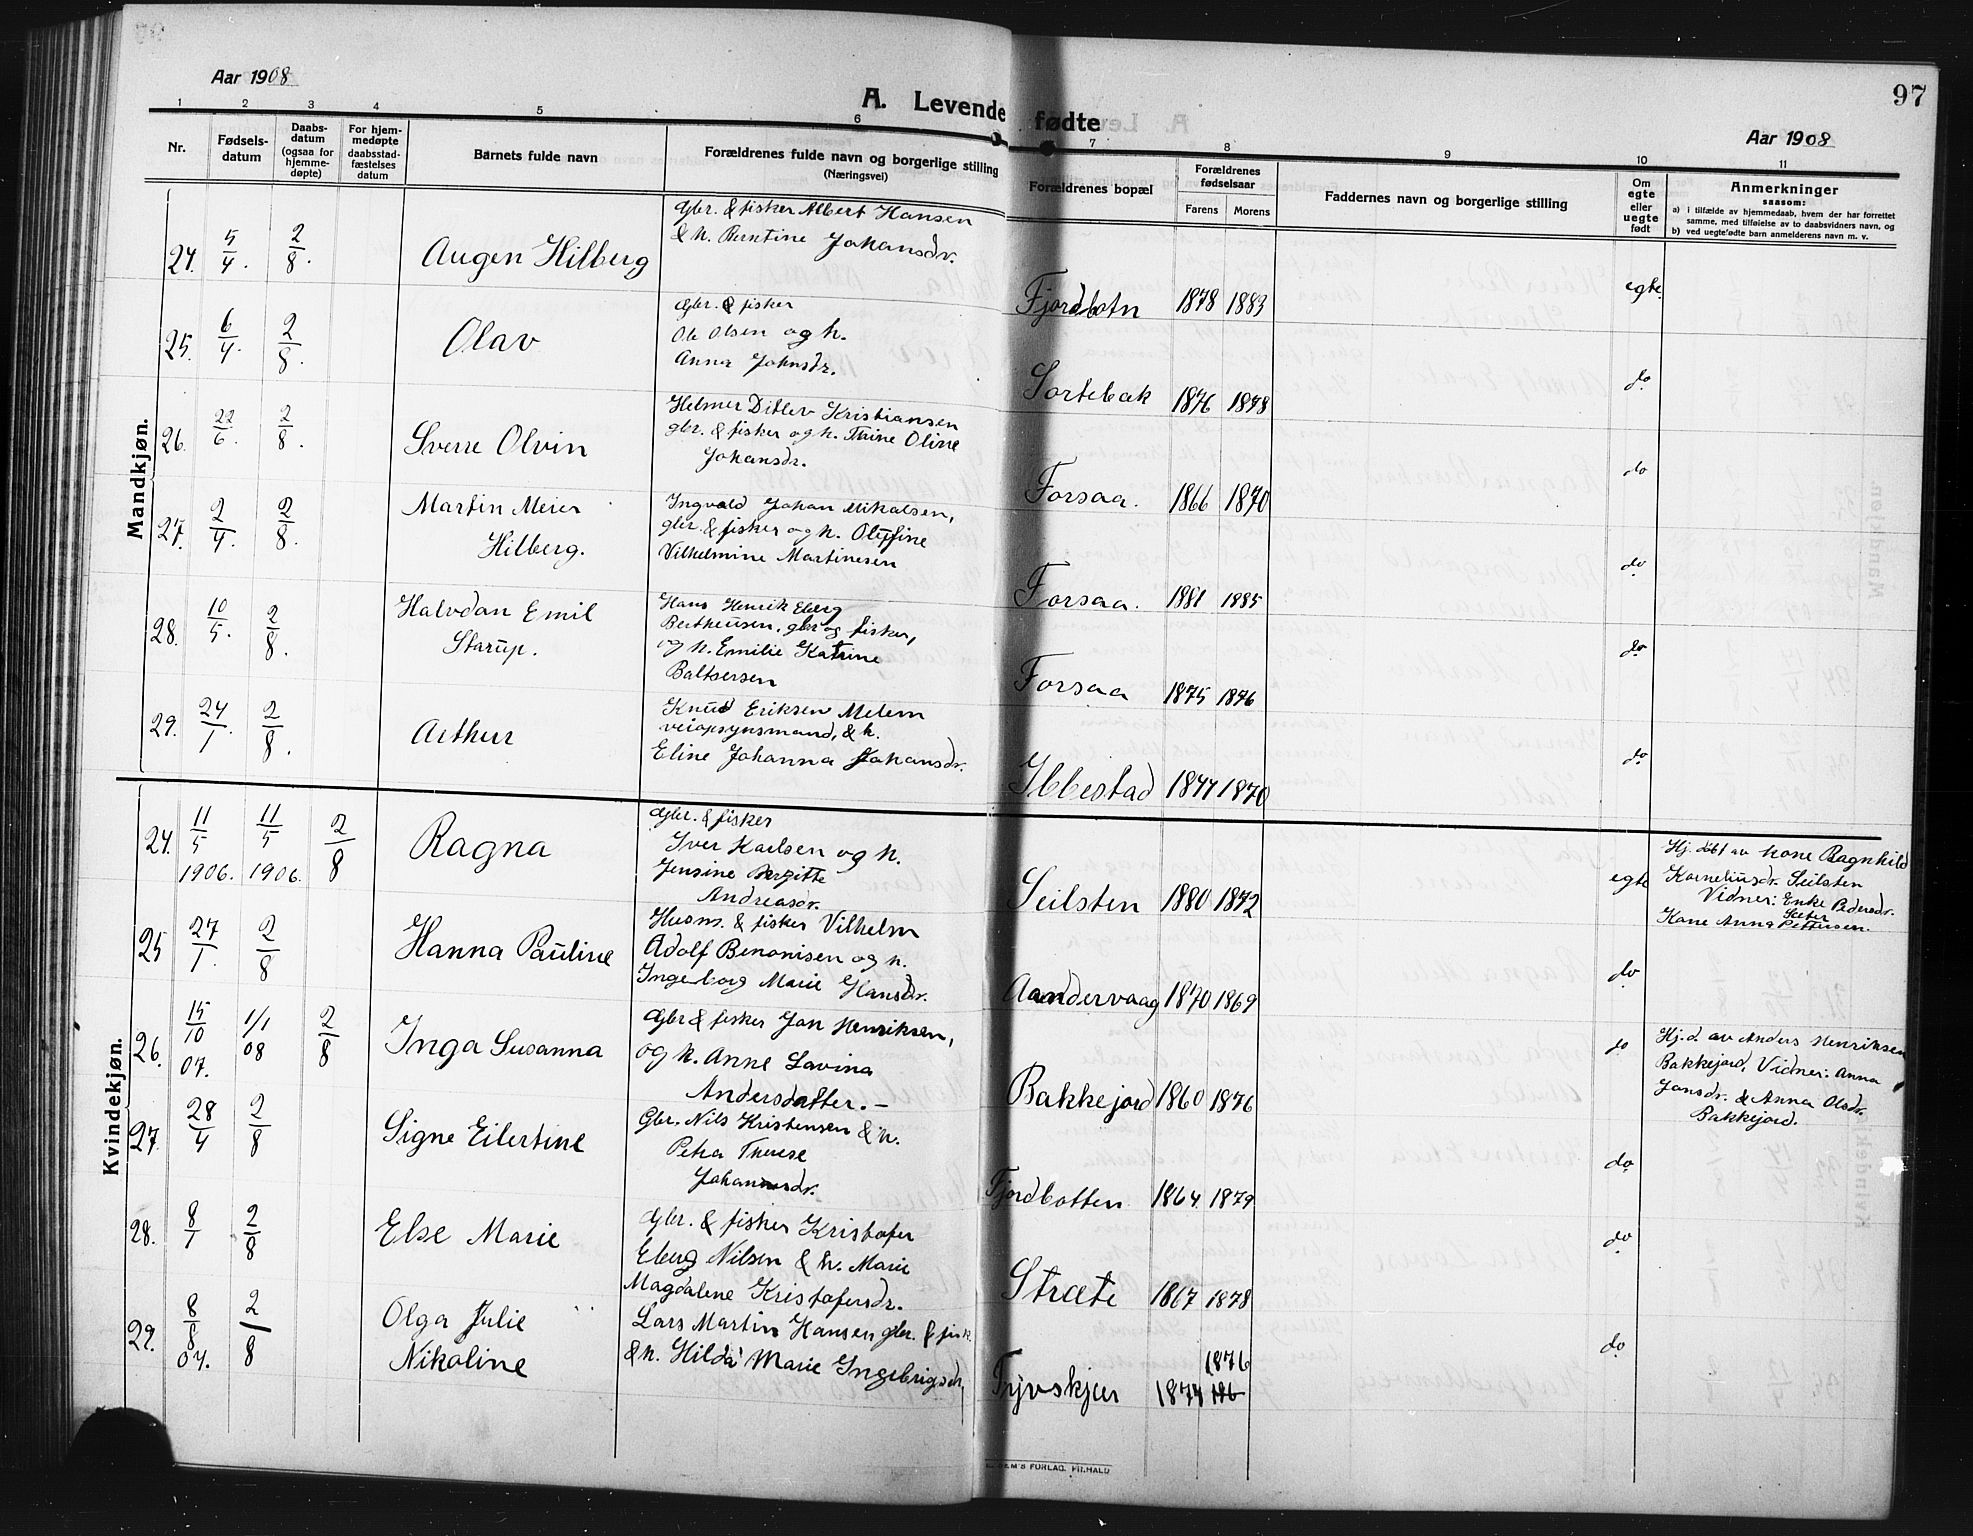 Aar 1908
A. Levende fødte
97
Aar 1908
1 2 3 4 5 6 7 8 9 10 11
Nr.
Fødsels-
datum
Daabs-
datum
(ogsaa for
hjemme-
døpte)
For hjem-
medøpte
daabsstad-
fæstelses
datum
Barnets fulde navn
Forældrenes fulde navn og borgerlige stilling
(Næringsvei)
Forældrenes bopæl
Forældrenes
fødselsaar
Farens
Morens
Faddernes navn og borgerlige stilling
Om
egte
eller
uegte
født
Anmerkninger
saasom:
a) i tilfælde av hjemmedaab, hvem der har forrettet
samme, med tilføielse av to daabsvidners navn, og
b) ved uegtefødte barn anmelderens navn m. v.
Mandkjøn.
24. 5/4. 2/8. Augen Hilberg
Gbr. & fisker Albert Hansen
& h. Berntine Johansdr.
Fjordbotn 1878 1883 egte.
25. 6/4. 2/8. Olav
Gbr. & fisker
Ole Olsen og h.
Anna Johnsdr.
Sortebak 1876 1878 do
26. 22/6. 2/8. Sverre Olvin
Helmer Ditlev Kristiansen
gbr. & fisker og h. Trine Oline
Johansdr.
Forsaa. 1866 1870 do
27. 2/4. 2/8. Martin Meier
Hilberg.
Ingvald Johan Mikalsen,
gbr. & fisker og h. Oluffine
Vilhelmine Martinesen
Forsaa. 1881 1885 do
28. 10/5. 2/8. Halvdan Emil
Starup.
Hans Henrik Eberg
Bertheusen, gbr og fisker,
og h. Emilie Katrine
Baltsersen
Forsaa 1875 1876 do
29. 24/1. 2/8. Arthur
Knud Eriksen Melem
veiopsynsmand, & h.
Eline Johanna Johansdr.
Ibbestad 1877 1870 do
Kvindekjøn.
24. 11/5 1906. 11/5 1906. 2/8 Ragna
Gbr. & fisker
Iver Karlsen og h.
Jensine Bergitte
Andreasdr.
Seilsten 1880 1872 egte
Hj. døbt av kone Ragnhild
Korneliusdr. Seilsten
Vidner: Enke Pedersdr.
Kone Anna Pettersen.
25 27/1. 2/8 Hanna Pauline
Husm. & fisker Vilhelm
Adolf Benonisen og h.
Ingeborg Marie Hansdr.
Aandervaag 1870 1869 do
26. 15/10 07. 1/1 08 2/8 Inga Susanna
Gbr & fisker Jon Henriksen,
og h. Anne Lavina
Andersdatter. —
Bakkejord 1860 1876 do
Hj. d. av Anders Henriksen
Bakkejord, Vidner: Anna
Jonsdr. & Anna Olsdr.
Bakkejord.
27. 28/4 2/8 Signe Eilertine
Gbr. Nils Kristensen & h.
Petra Therese
Johannesdr.
Fjordbotten 1864 1879 do
28. 8/1 2/8 Else Marie
Gbr. & fisker Kristofer
Eberg Nilsen & h. Marie
Magdalene Kristofersdr.
Stræte 1867 1878 do
29. 8/8 07. 2/8 Olga Julie
Nikoline
Lars Martin Hansen gbr. & fisk.
& h. Hilda Marie Ingebrigsdr.
1874 1876 do
FORLAG, FR.HALD